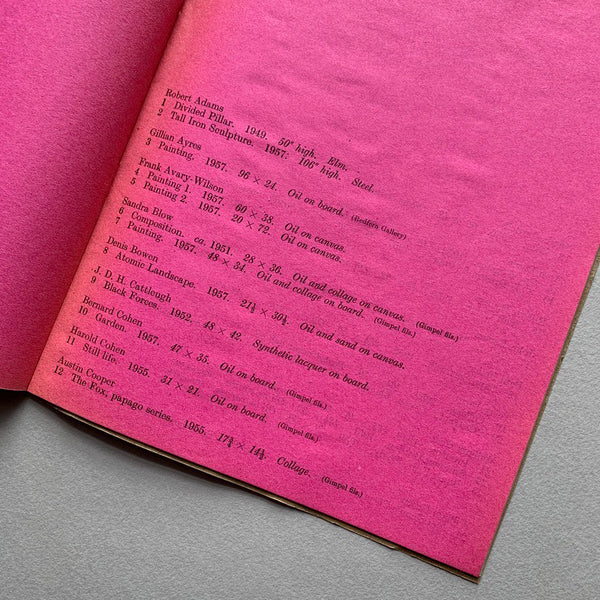 Robert Adams
1 Divided Pillar. 1949. 50" high. Elm.
2 Tall Iron Sculpture. 1957. 106" high. Steel.
Gillian Ayres
3 Painting. 1957. 96 × 24. Oil on board. (Redfern Gallery)
Frank Avary-Wilson
4 Painting 1. 1957. 60 × 38. Oil on canvas.
5 Painting 2. 1957. 20 × 72. Oil on canvas.
Sandra Blow
6 Composition. ca. 1951. 28 × 36. Oil and collage on canvas. (Gimpel fils.)
7 Painting. 1957. 48 × 34. Oil and collage on board. (Gimpel fils.)
Denis Bowen
8 Atomic Landscape. 1957. Oil and sand on canvas.
J. D. H. Catleugh
9 Black Forces. 1952. 48 × 42. Synthetic lacquer on board.
Bernard Cohen
10 Garden. 1957. 47 × 35. Oil on board. (Gimpel fils.)
Harold Cohen
11 Still life. 1955. 31 × 21. Oil on board. (Gimpel fils.)
Austin Cooper
12 The Fox, papago series. 1955. Collage. (Gimpel fils.)